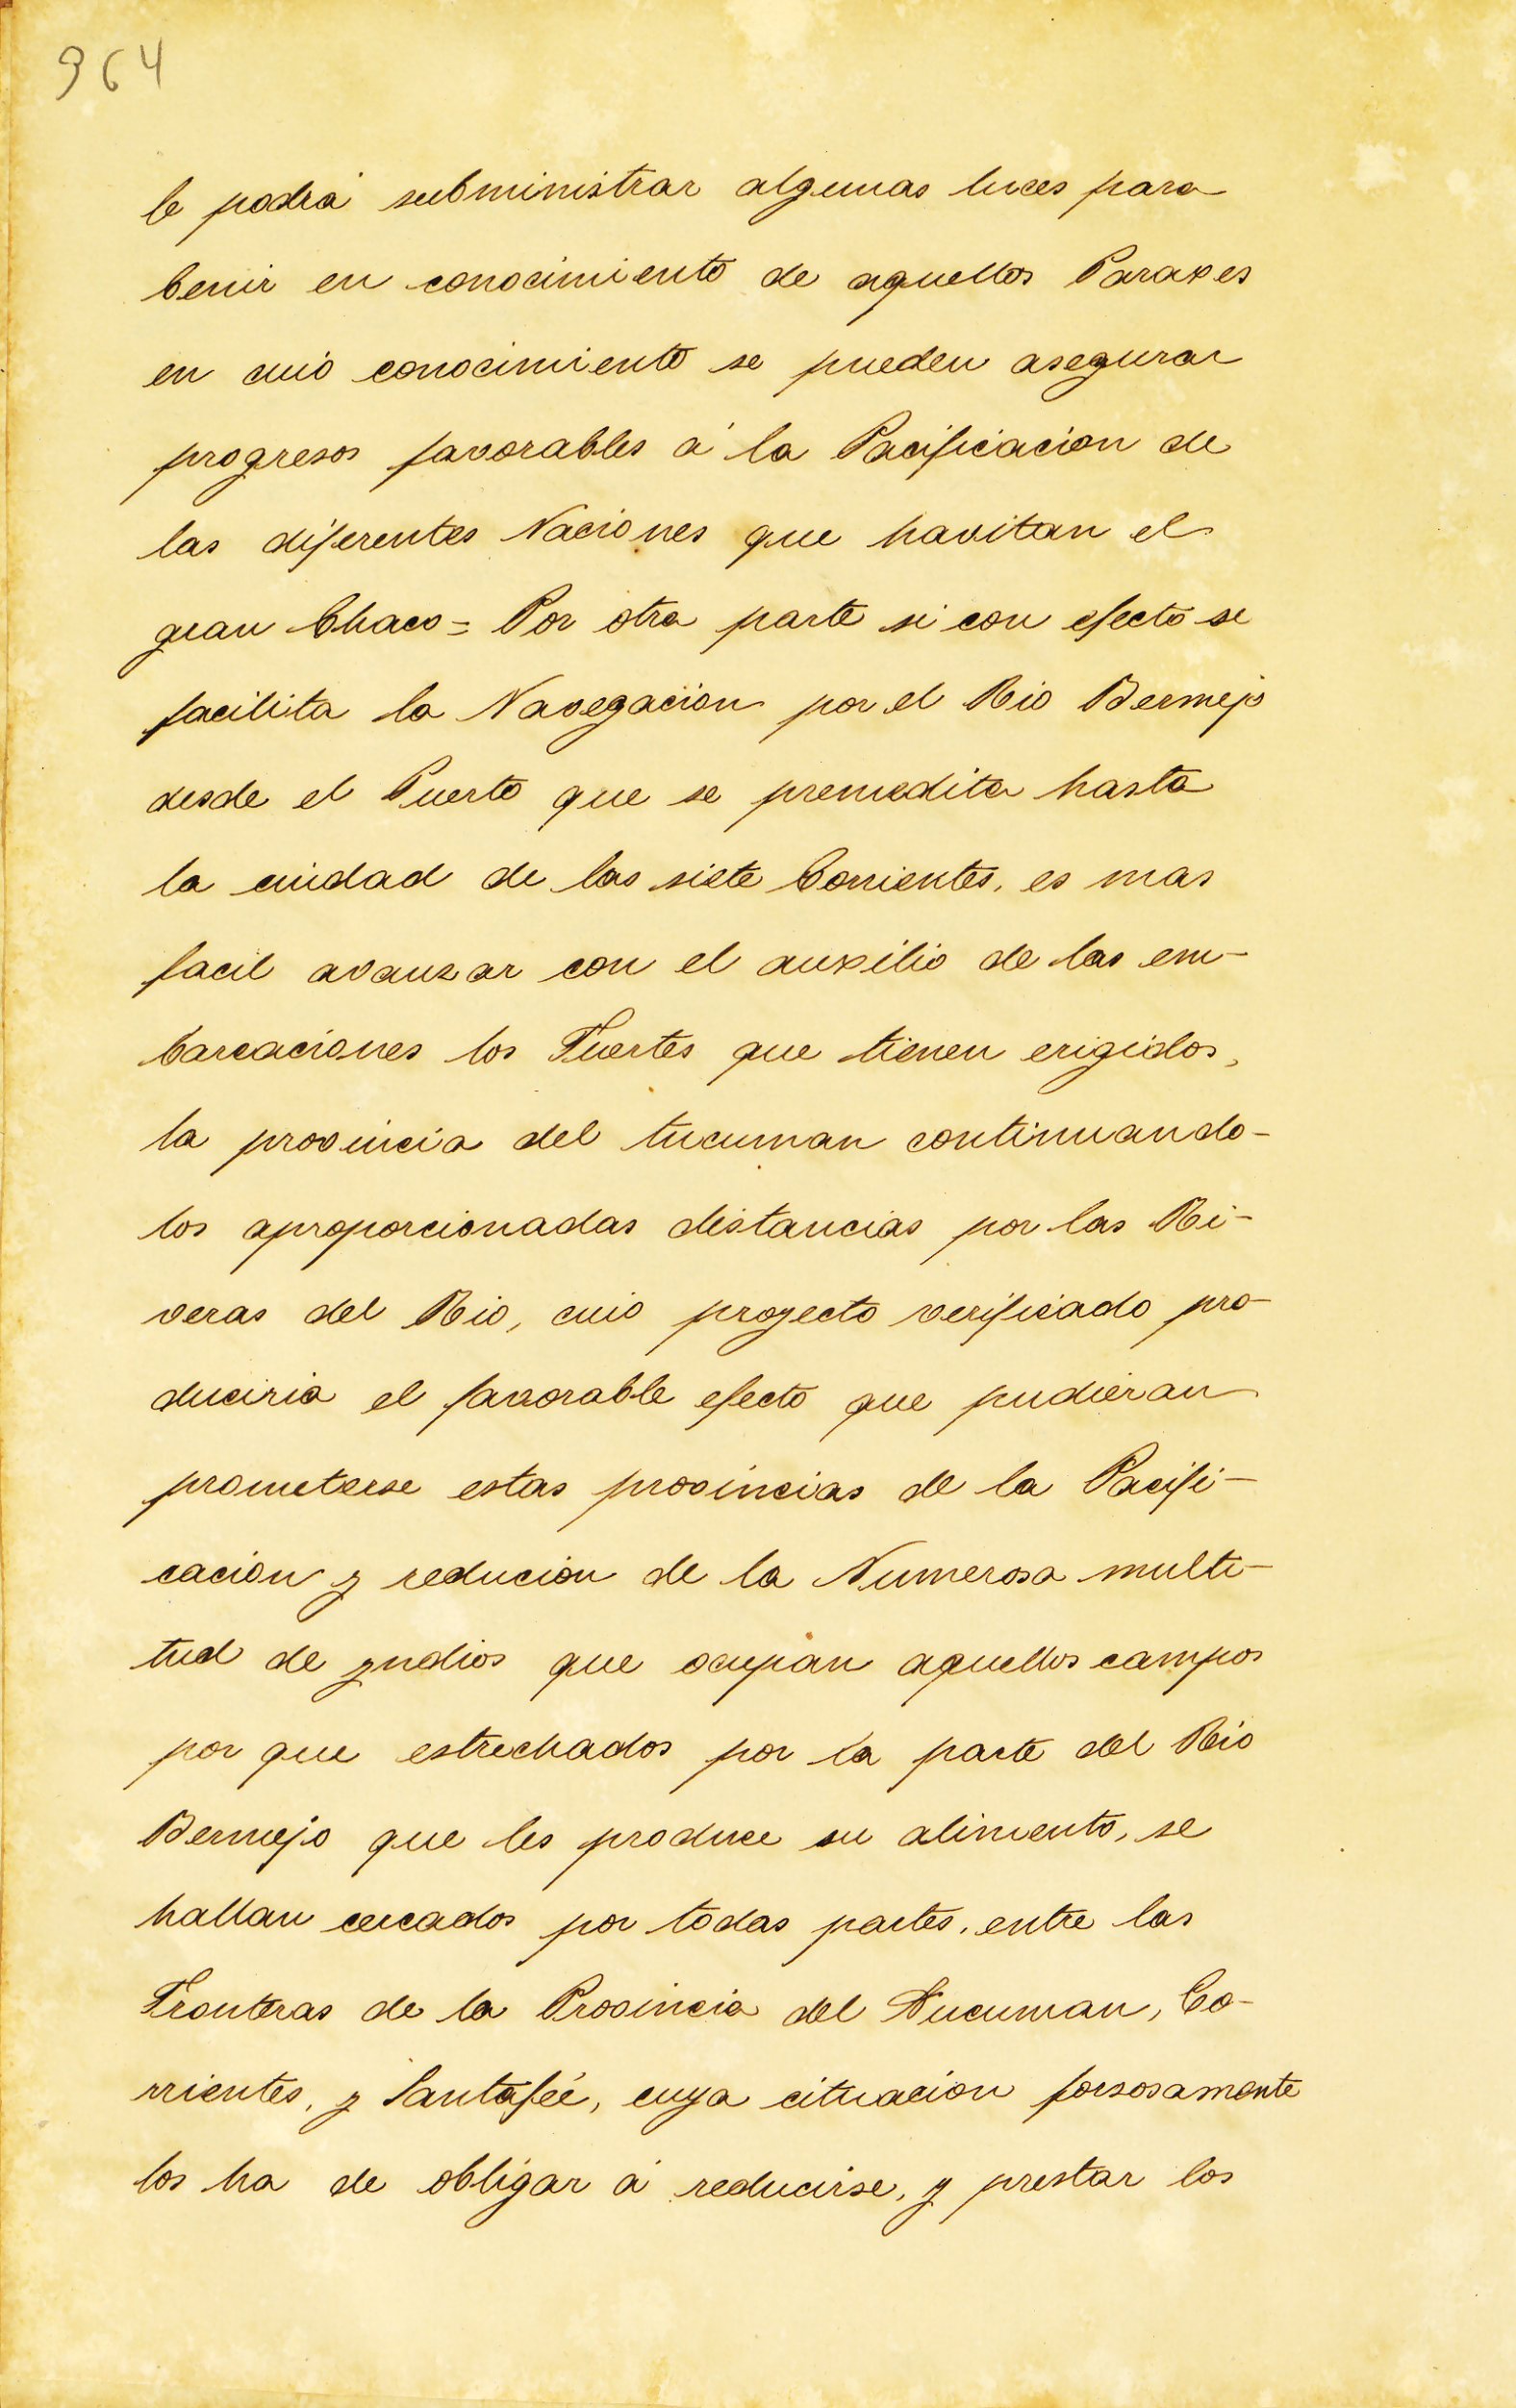 964
le podrá subministrar algunas luces para
benir en conocimiento de aquellos Paraxes
en cuio conocimiento se pueden asegurar
progresos favorables á la Pacificacion de
las diferentes Naciones que havitan el
gran Chaco = Por otra parte si con efecto se
facilita la Navegacion por el Rio Bermejo
desde el Puerto que se premedita hasta
la ciudad de las siete Corrientes, es mas
facil avanzar con el auxilio de las em-
barcaciones los Fuertes que tienen erigidos,
la provincia del tucuman continuando-
los aproporcionadas distancias por las Ri-
veras del Rio, cuio proyecto verificado pro-
duciria el favorable efecto que pudieran
prometerse estas provincias de la Pacifi-
cacion y reducion de la Numerosa multi-
tud de yndios que ocupan aquellos campos
por que estrechados por la parte del Rio
Bermejo que les produce su alimento, se
hallan cercados por todas partes, entre las
Fronteras de la Provincia del Tucuman, Co-
rrientes, y Santafeé, cuya cituacion forsosamente
los ha de obligar á reducirse, y prestar los